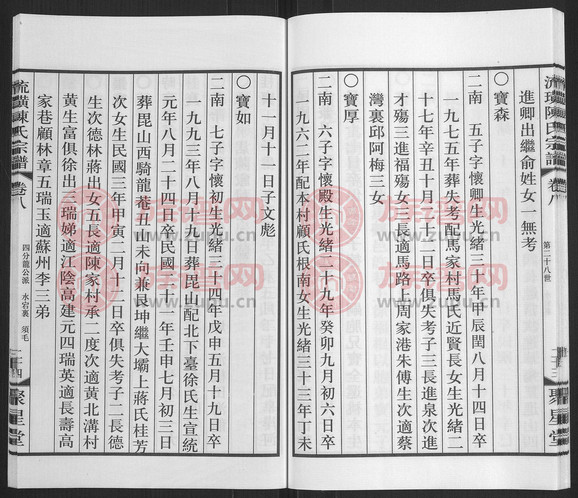 流璜陳氏宗譜 卷八 第二十八世 二十三 聚星堂
進卿出繼俞姓女一無考
〇寶森
二南 五子字懷卿生光緒三十年甲辰閏八月十四日卒
一九七五年葬失考配馬家村馬氏近賢長女生光緒二
十七年辛丑十月二十二日卒俱失考子三長進泉次進
才殤三進福殤女三長適馬路上周家港朱傅生次適蔡
灣裏邱阿梅三女
〇寶厚
二南 六子字懷殿生光緒二十九年癸卯九月初六日卒
一九六二年配本村顧氏根南女生光緒三十三年丁未
十一月十一日子文彪
〇寶如
二南 七子字懷初生光緒三十四年戊申五月十九日卒
一九九三年八月十九日葬毘山配北下臺徐氏生宣統
元年八月二十四日卒民國二十一年壬申七月初三日
葬毘山西騎龍菴丑山未向兼艮坤繼大壩上蔣氏桂芳
次女生民國三年甲寅二月十二日卒俱失考子二長德
生次德林蔣出女五長適陳家村承二度次適黃北溝村
黃生富俱徐出三瑞娣適江陰高建元四瑞英適長壽高
家巷顧林章五瑞玉適蘇州李三弟
流璜陳氏宗譜 卷八 四分龍公派 水宕裏 須毛 二十四 聚星堂
族譜網
www.zupu.cn